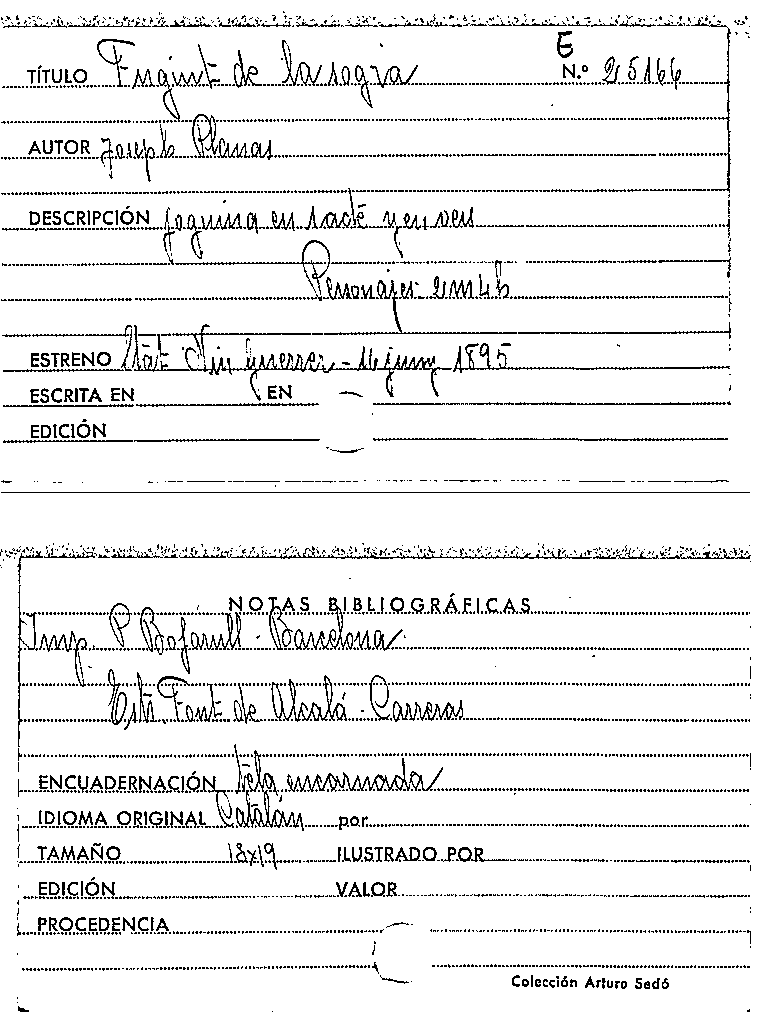 E
TÍTULO Fugint de la sogra N.º 25166
AUTOR Joseph Planas
DESCRIPCIÓN joguina en 1 acte y en vers
Personajes 2m 4h
ESTRENO Niu Guerrer - 16 juny 1895
ESCRITA EN EN
EDICIÓN
NOTAS BIBLIOGRÁFICAS
Imp. P Bofarull - Barcelona
Font de Alcalá - Carreras
ENCUADERNACIÓN tela encarnada
IDIOMA ORIGINAL Catalán por
TAMAÑO 18x19 ILUSTRADO POR
EDICIÓN VALOR
PROCEDENCIA
Colección Arturo Sedó